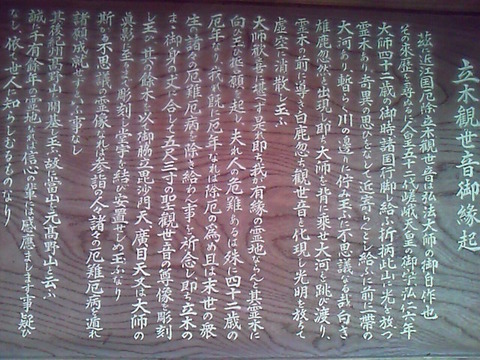 立木観世音御縁起
茲に近江国厄除立木観世音は弘法大師の御自作也
その来歴を尋ぬるに人皇五十二代嵯峨天皇の御宇弘仁六年
大師四十二歳の御時諸国行脚し給ふ折柄此山に光を放つ
霊木あり奇異の思ひをなして近寄らんとし給ふに前に一帯の
大河あり暫らく川の邊りに佇み玉ふに不思議なる哉白き
雄鹿忽ち出現し即ち大師を背に乗せ大河を跳び渡り、
霊木の前に導き白鹿忽ち観世音と化現し光明を放ちて
虚空に消散し玉ふ
大師歓喜に堪へす是れ即ち我が有縁の霊地ならんと其霊木に
向ひ玉ひ誓願を起し夫れ人の厄難あるは殊に四十二歳の
厄年なり、我れ既に厄年なれば除厄の為め且は末世の衆
生の諸々の厄難厄病を除き給わん事を祈念し即ち立木の
まゝ御身の丈に合して五尺三寸の聖観世音の尊像を彫刻
し玉ふ其の餘木を以て御脇立毘沙門天、廣目天又は大師の
真影を玉まで彫刻し堂宇を結び安置せしめ玉ふなり
斯かる不思議の霊像なれば参詣の人諸々の厄難厄病を遁れ
諸願成就せずといふ事なし
其後紀州高野山を開基し玉ふ故に當山を元高野山と云ふ
誠に千有餘年の霊地なれば信心の輩は感應まします事疑ひ
なし、依て世人に知らしむるものなり、